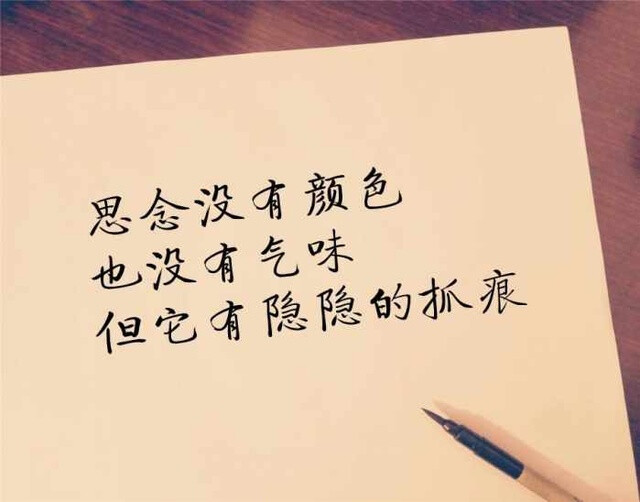 思念没有颜色
也没有气味
但它有隐隐的抓痕